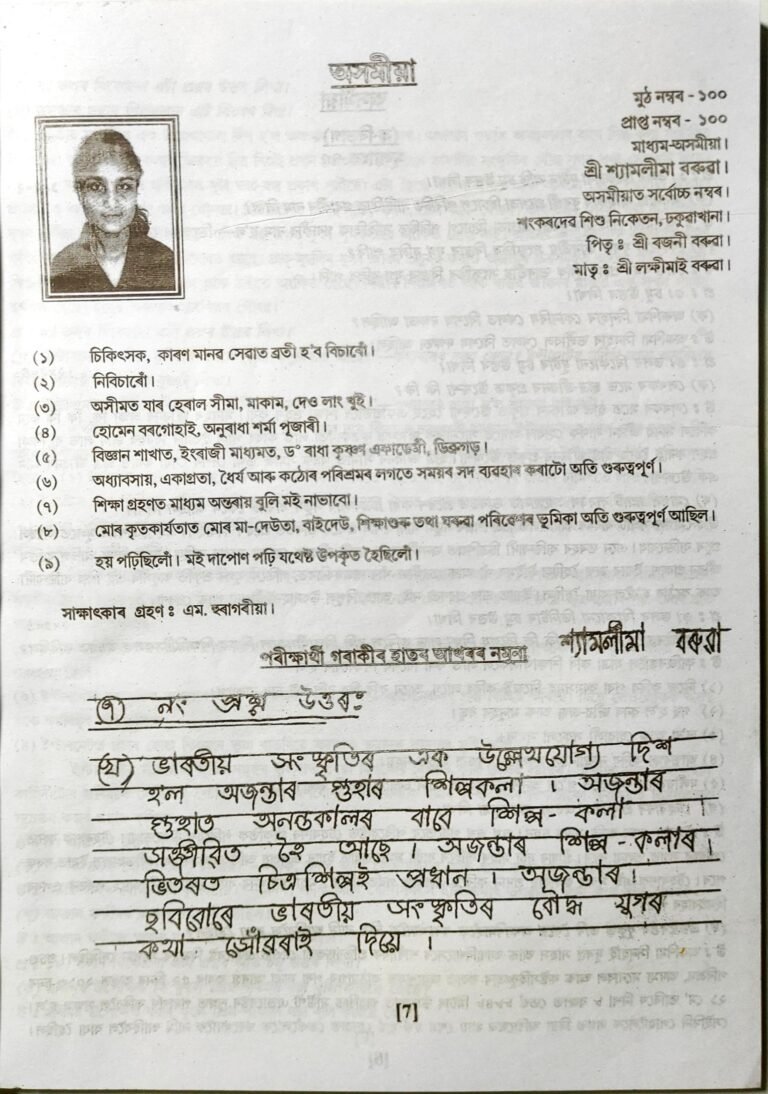 অসমীয়া
মুঠ নম্বৰ - ১০০
প্ৰাপ্ত নম্বৰ - ১০০
মাধ্যম-অসমীয়া।
শ্ৰী শ্যামলীমা বৰুৱা।
অসমীয়াত সৰ্বোচ্চ নম্বৰ।
শংকৰদেৱ শিশু নিকেতন, ঢকুৱাখানা।
পিতৃ : শ্ৰী ৰজনী বৰুৱা।
মাতৃ : শ্ৰী লক্ষীমাই বৰুৱা।
(১) চিকিৎসক, কাৰণ মানৱ সেৱাত ব্ৰতী হ'ব বিচাৰোঁ।
(২) নিবিচাৰোঁ।
(৩) অসীমত যাৰ হেৰাল সীমা, মাকাম, দেও লাং খুই।
(৪) হোমেন বৰগোহাই, অনুৰাধা শৰ্মা পূজাৰী।
(৫) বিজ্ঞান শাখাত, ইংৰাজী মাধ্যমত, ড° ৰাধা কৃষ্ণৰ একাডেমী, ডিব্ৰুগড়।
(৬) অধ্যাবসায়, একাগ্ৰতা, ধৈৰ্য আৰু কঠোৰ পৰিশ্ৰমৰ লগতে সময়ৰ সদ ব্যৱহাৰ কৰাটো অতি গুৰুত্বপূৰ্ণ।
(৭) শিক্ষা গ্ৰহণত মাধ্যম অন্তৰায় বুলি মই নাভাবো।
(৮) মোৰ কৃতকাৰ্যতাত মোৰ মা-দেউতা, বাইদেউ, শিক্ষাগুৰু তথা ঘৰুৱা পৰিৱেশৰ ভূমিকা অতি গুৰুত্বপূৰ্ণ আছিল।
(৯) হয় পঢ়িছিলোঁ। মই দাপোণ পঢ়ি যথেষ্ট উপকৃত হৈছিলোঁ।
সাক্ষাৎকাৰ গ্ৰহণ : এম. হাগৰীয়া।
শ্যামলীমা বৰুৱা
পৰীক্ষাৰ্থী গৰাকীৰ হাতৰ আখৰৰ নমুনা
(৭) নং প্ৰশ্ন উত্তৰঃ
(ঘ) ভাৰতীয় সংস্কৃতিৰ এক উল্লেখযোগ্য দিশ
হ'ল অজন্তাৰ গুহাৰ শিল্পকলা। অজন্তাৰ
গুহাত অনন্তকালৰ বাবে শিল্প-কলা
সঞ্জীৱিত হৈ আছে। অজন্তাৰ শিল্প-কলাৰ।
ভিতৰত চিত্ৰশিল্পই প্ৰধান। অজন্তাৰ।
ছবিবোৰে ভাৰতীয় সংস্কৃতিৰ বৌদ্ধ যুগৰ
কথা সোঁৱৰাই দিয়ে।
[7]